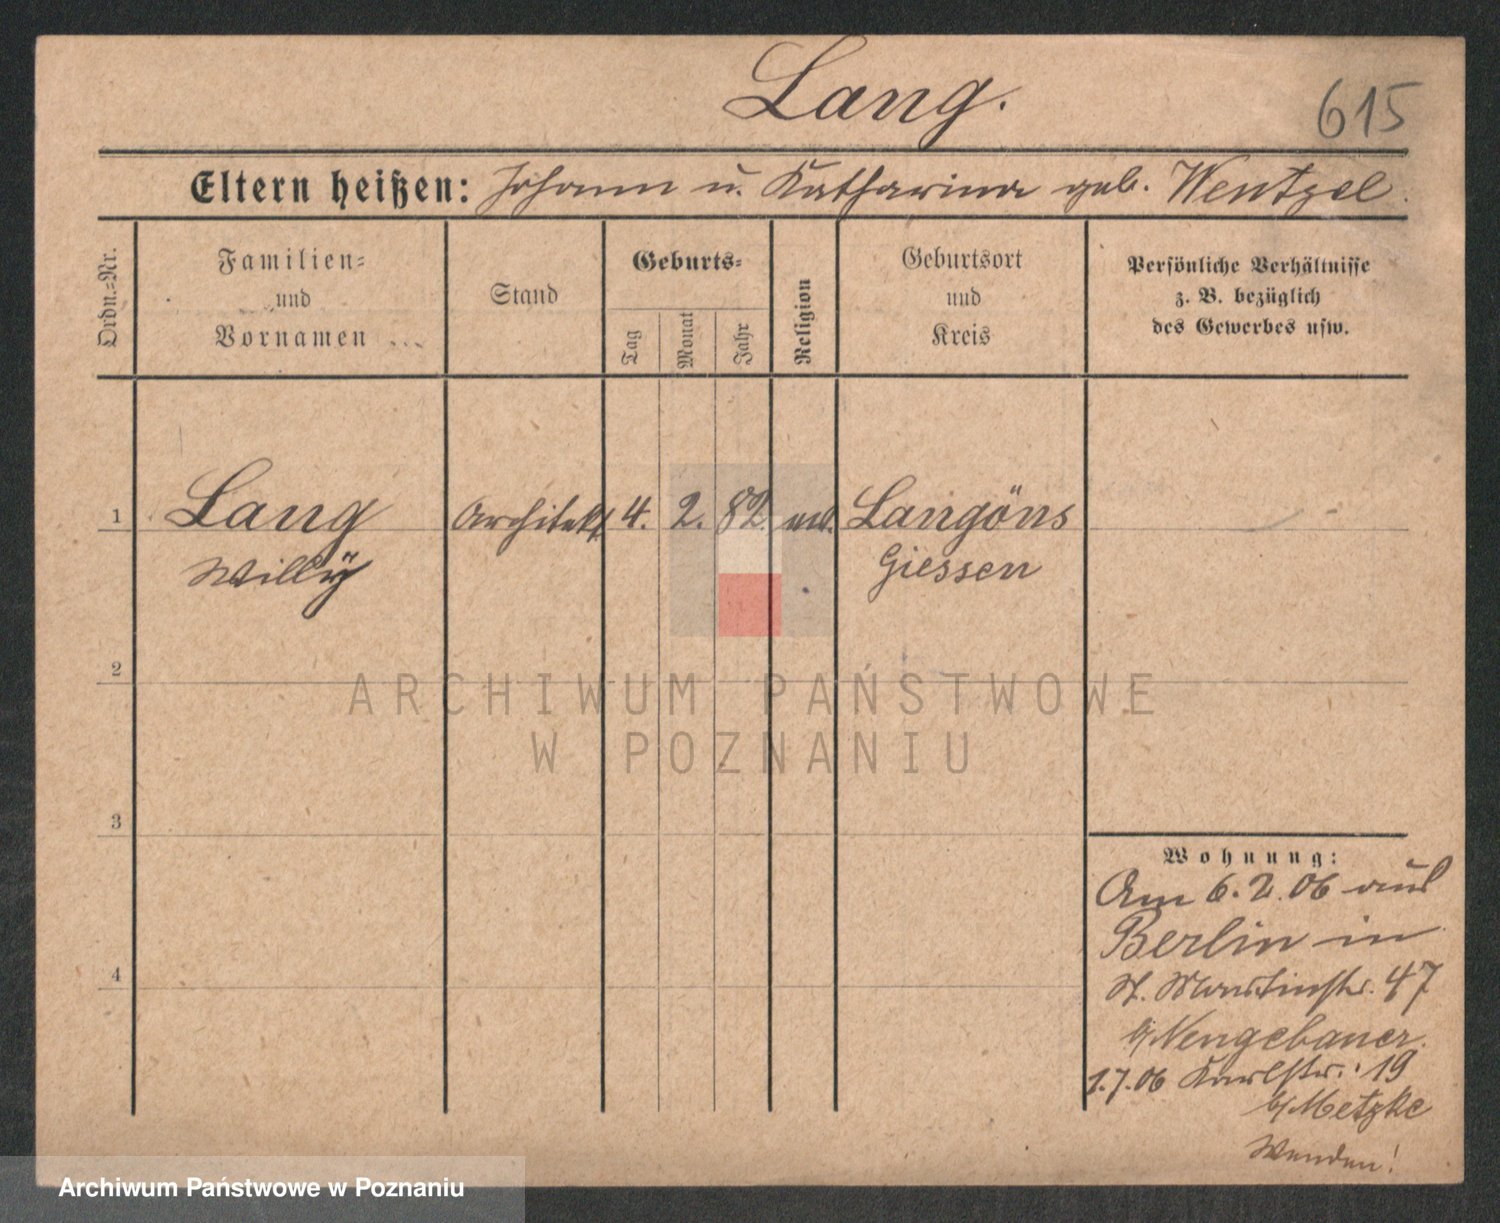 Lang.
615
Eltern heißen: Johann u. Katharina geb. Wentzel.
Ordn.=Nr.
Familien=
und
Vornamen
Stand
Geburts=
Tag
Monat
Jahr
Religion
Geburtsort
und
Kreis
Persönliche Verhältnisse
z. B. bezüglich
des Gewerbes usw.
1 Lang Architekt 4. 2. 82 Langöns
Willÿ Giessen
2
ARCHIWUM PAŃSTWOWE
W POZNANIU
3
Wohnung:
Am 6.2.06 aus
Berlin in
St. Martinstr. 47
b/ Neugebauer.
1.7.06 Karlstr. 19
b/ Metzke
Wenden!
4
Archiwum Państwowe w Poznaniu